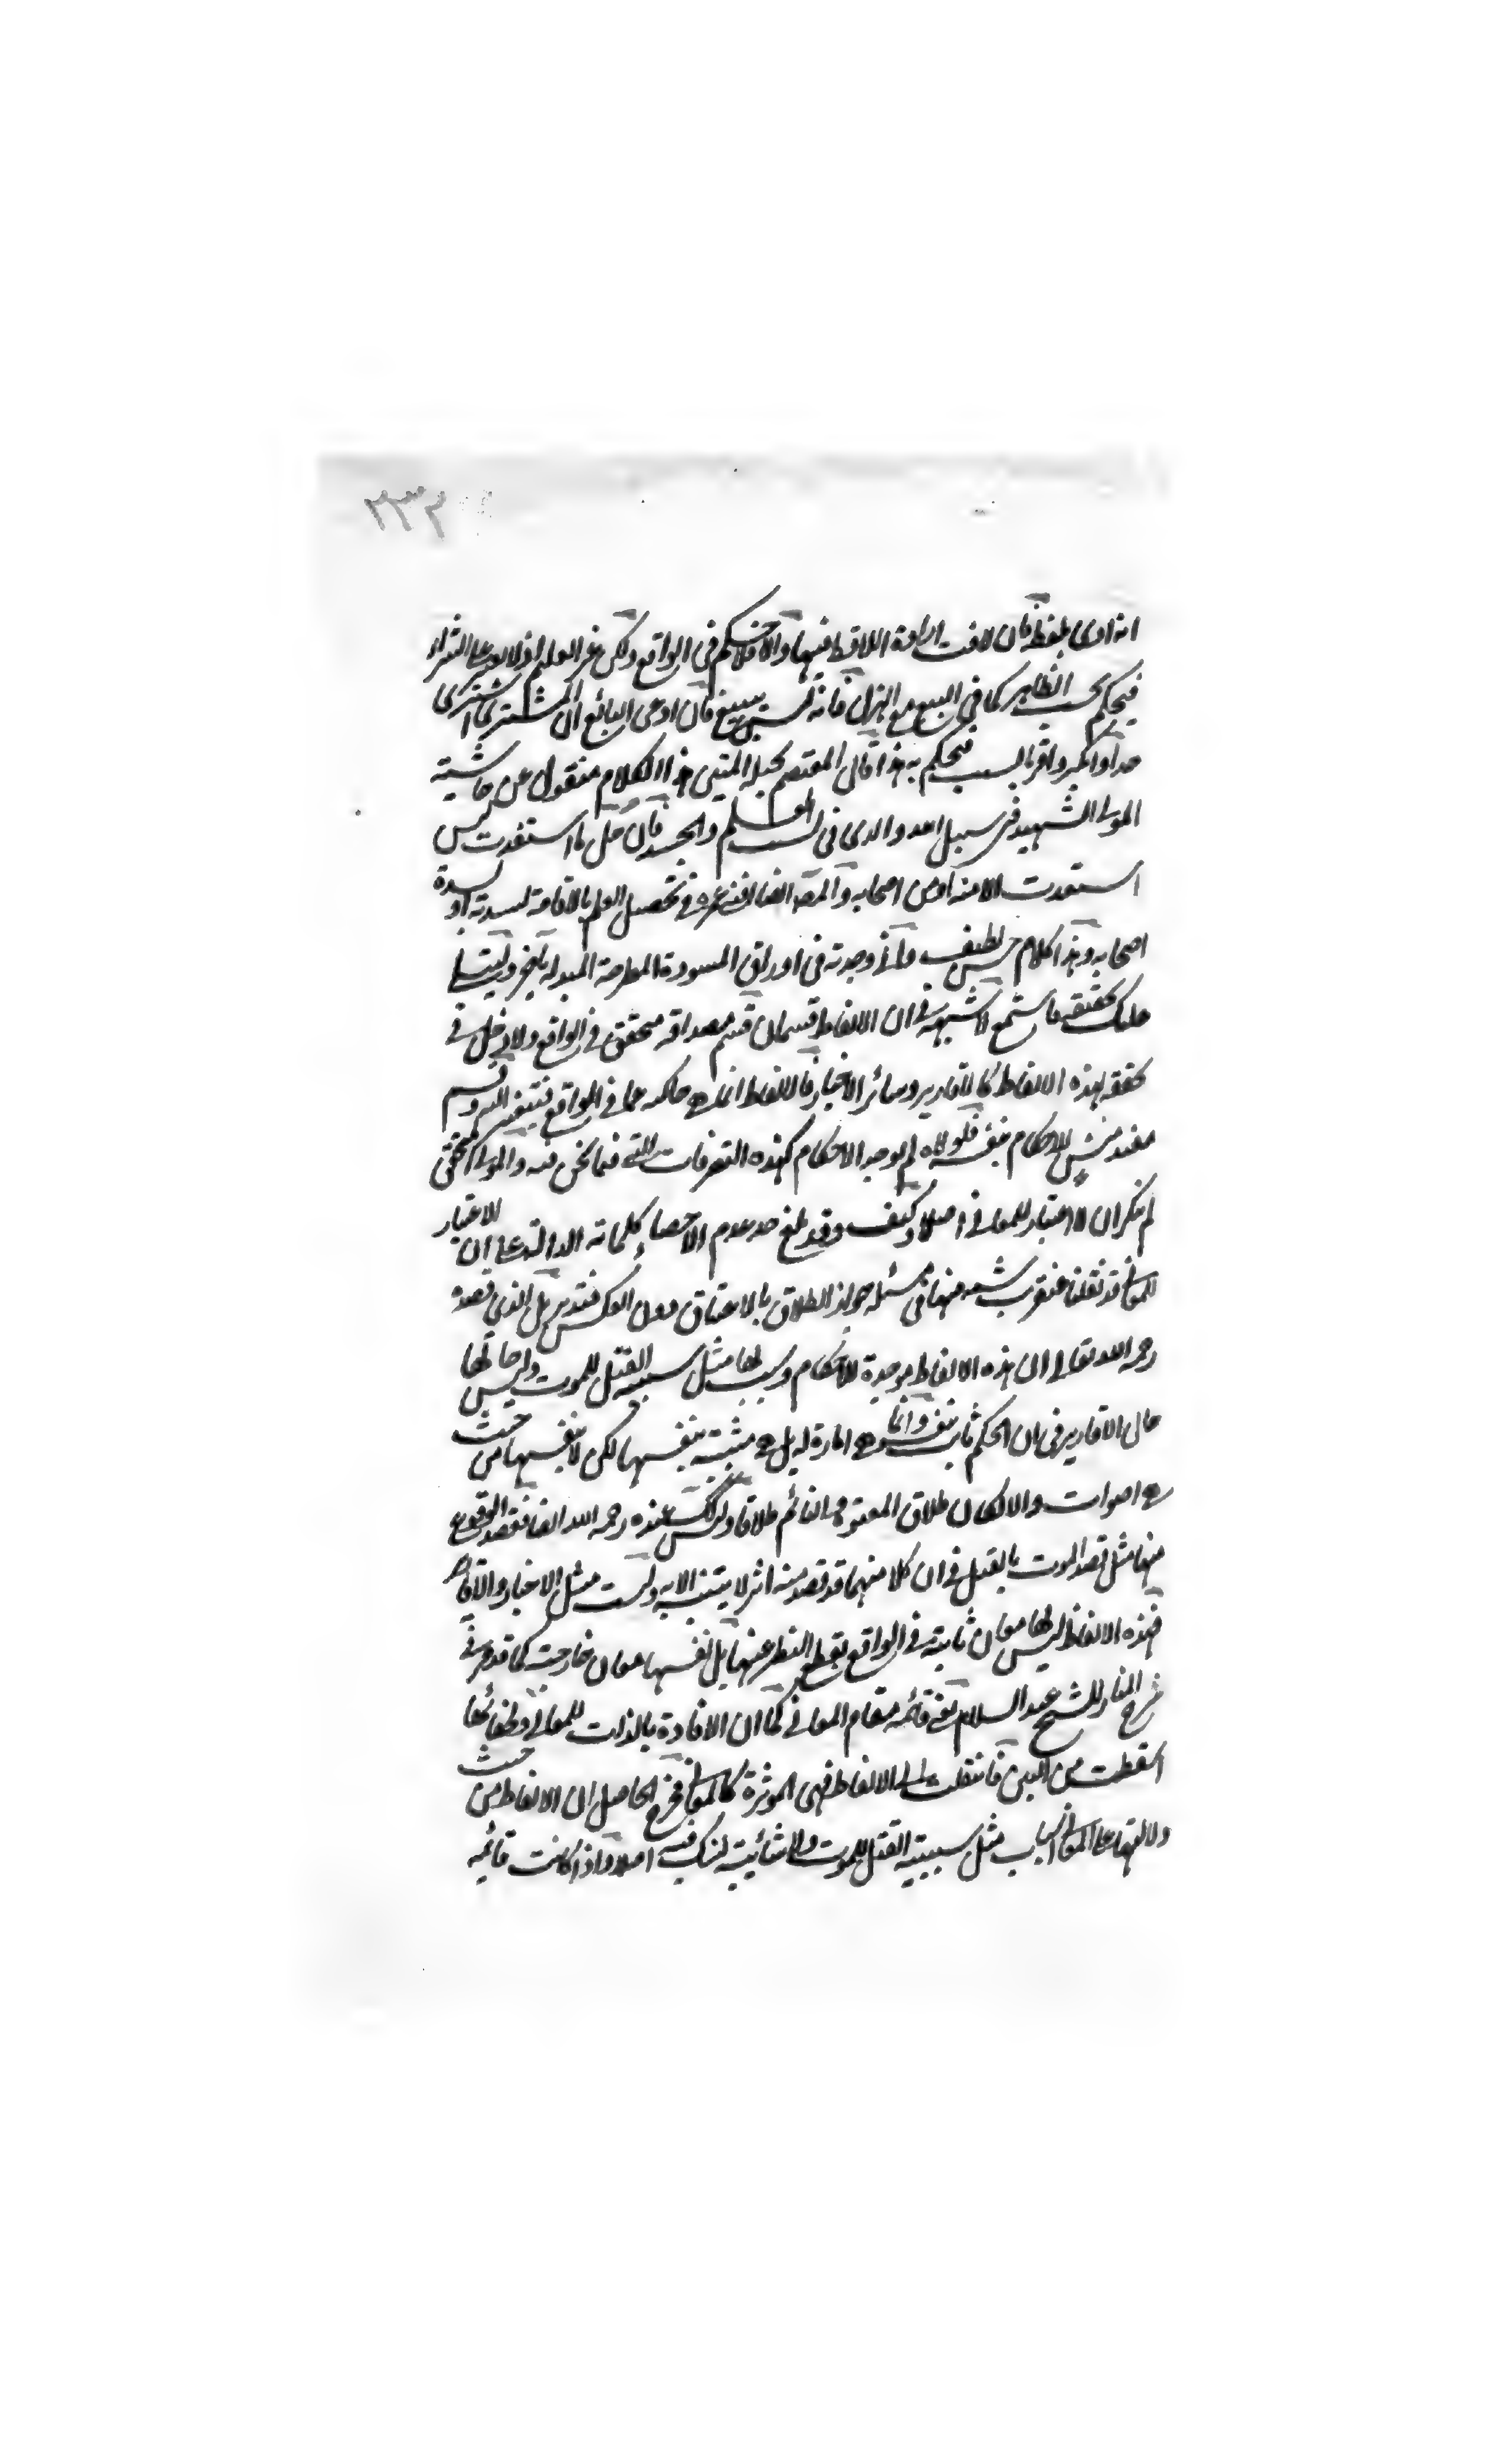 ٢٣٣
انه اوى بلفظ فان لافت ارادة اللافظ فيها والا فلا حكم في الواقع ولكن غير العليم اذ لا يعبر على السرائر
فيحكم بحسب الظاهر كما في البيع مع الهزل فانه ليس ببيع فان ادعى البائع ان المشترى اشترى
جدا وانكر واقر بالسبب فيحكم به هذا قال المعتصم بحبله المتين هذا الكلام منقول عن حاشية
المولى الشهيد في سبيل الله والدى في العلم والجسد فان قيل ما استفدت ليس
استفدت الا منه او من اصحابه والمص ايضا افنى عمره في تحصيل العلم بالاقامة لسدته او لسدة
اصحابه وهذا كلام حسن لطيف وانى وجدته في اوراق المسودة المطرحة المبدلة
عليك تحقيقه فاستمع لا شبهة في ان الالفاظ قسمان قسم مصداقه متحقق في الواقع ولا دخل في
تحققه لهذه الالفاظ كالاقارير وسائر الاخبار فالالفاظ انما هي حاكية عما في الواقع وقسم
منشئ للاحكام بنفسه فلولاه لم يوجد الاحكام كهذه التصرفات التي فيما نحن فيه والمولى المحقق
لم ينكر ان لا اعتبار للمعاني اصلا وكيف وقد بلغ حد عدم الاحصاء كلماته الدالة على ان الاعتبار
للمعاني قد نقلنا عنقريب منها في مسئلة جواز الطلاق بالاعتاق دون العكس فتدبر بل الذي قصده
رحمه الله تعالى ان هذه الالفاظ موجدة للاحكام وسببيتها مثل سببية القتل للموت وليس حالها
حال الاقارير في ان الحكم ثابت بنفسه وانما هي امارة له بل هي مثبتة بنفسها لكن لا بنفسها من حيث
هي اصوات والا لكان طلاق المعتوه والنائم طلاقا وليس كذلك عنده رحمه الله ايضا فقصد الوقوع
منها مثل قصد الموت بالقتل في ان كلا منهما قد قصد منه اثر لا يتبين الا به وليست مثل الاخبار والاقارير
فهذه الالفاظ ليس لها معان ثابتة في الواقع بقطع النظر عنها بل نفسها معان خارجية كما قد مر في
شرح المنار للشيخ عبد السلام يعني قائمة مقام المعاني كما ان الافادة بالذات للمعاني ولخفائها
اسقطت من البين فانتقلت الى الالفاظ فهي المؤثرة كالمعاني فخرج الحاصل ان الالفاظ من حيث
دلالتها على المعاني اسباب مثل سببية القتل للموت ولا شائبة لشك فيه اصلا واذا كانت قائمة